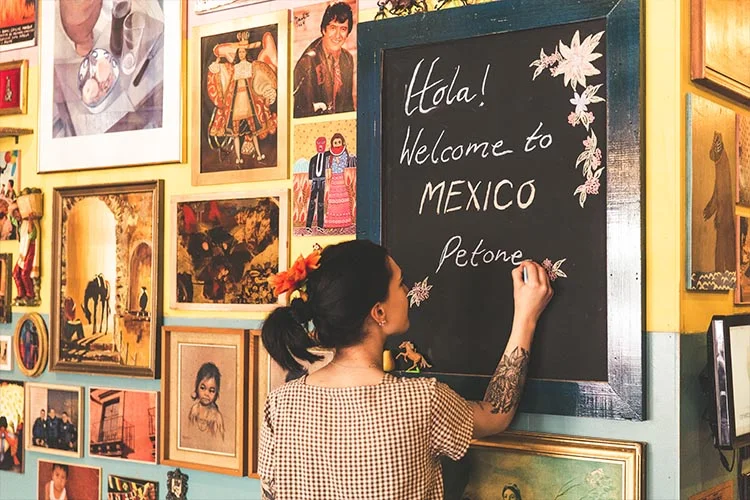 Hola!
Welcome to
MEXICO
Petone